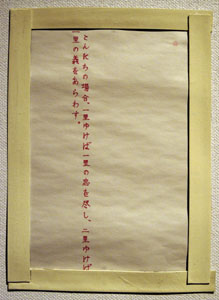 こんにちの場合、一里ゆけば一里の忠を尽し、二里ゆけば
二里の義をあらわす。